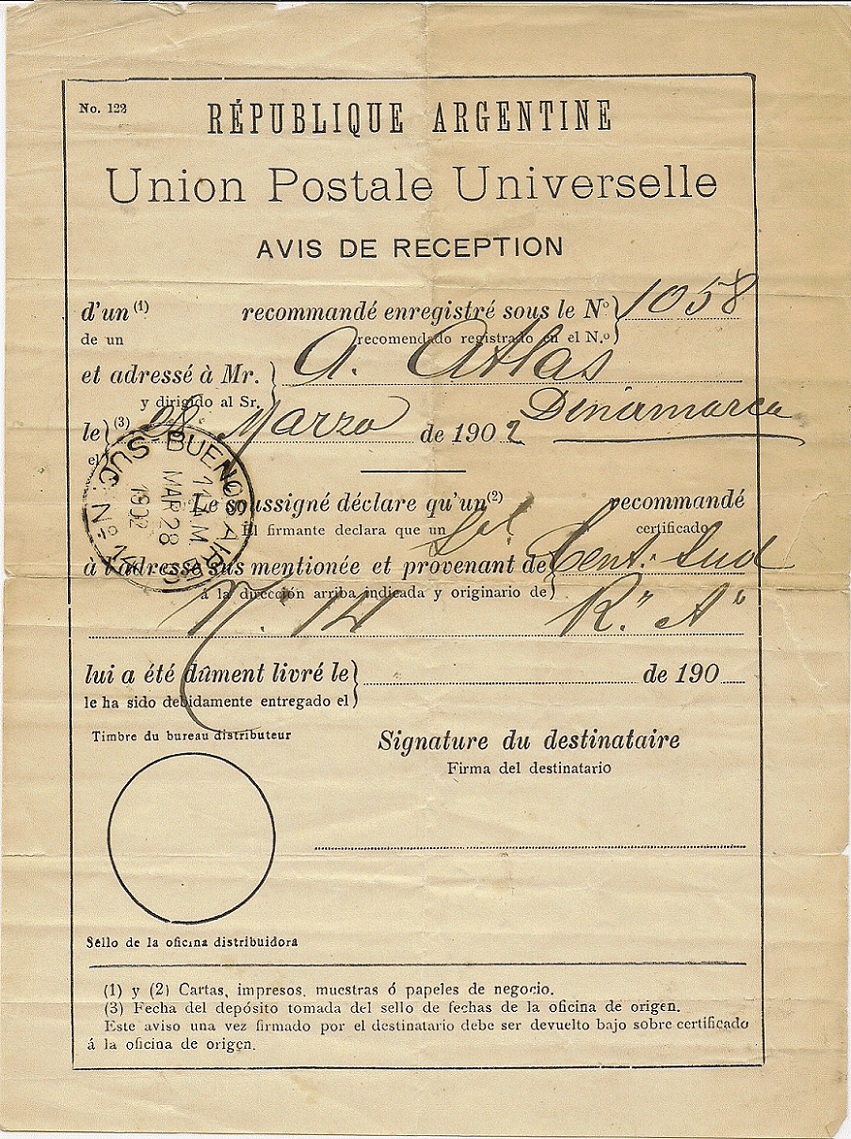 No. 122
RÉPUBLIQUE ARGENTINE
Union Postale Universelle
AVIS DE RECEPTION
d'un (1) recommandé enregistré sous le Nº } 1058
de un recomendado registrado en el N.º
et adressé à Mr. } A. Atlas
y dirigido al Sr.
Dinamarca
le (3) 28 Marzo de 1902
el
SUC. Nº 14 BUENOS AIRES
11 A.M.
MAR 28
1902
Le soussigné déclare qu'un (2) recommandé
El firmante declara que un certificado
à l'adresse sus mentionée et provenant de Cent. Sud
á la dirección arriba indicada y originario de
N. 14 R. A
lui a été dûment livré le } de 190
le ha sido debidamente entregado el
Timbre du bureau distributeur
Signature du destinataire
Firma del destinatario
Séllo de la oficina distribuidora
(1) y (2) Cartas, impresos, muestras ó papeles de negocio.
(3) Fecha del depósito tomada del sello de fechas de la oficina de origen.
Este aviso una vez firmado por el destinatario debe ser devuelto bajo sobre certificado
á la oficina de origen.